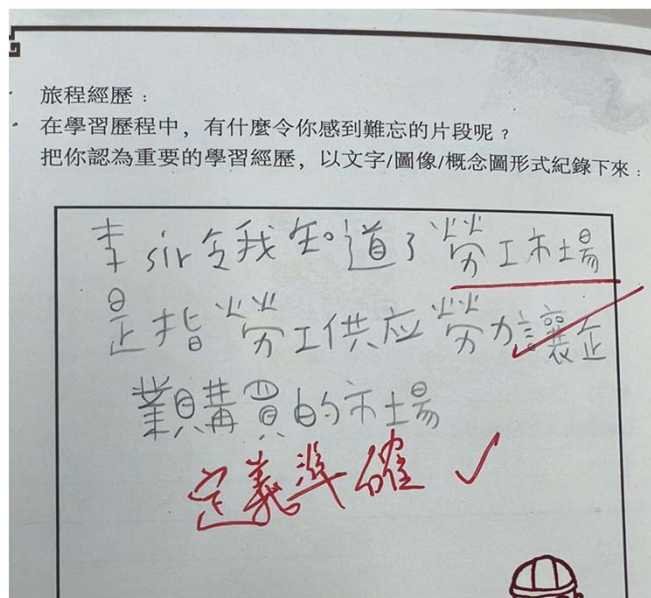 旅程經歷：
在學習歷程中，有什麼令你感到難忘的片段呢？
把你認為重要的學習經歷，以文字/圖像/概念圖形式紀錄下來：
李sir令我知道了勞工市場
是指勞工供应勞力讓企
業購買的市場
定義準確 ✓